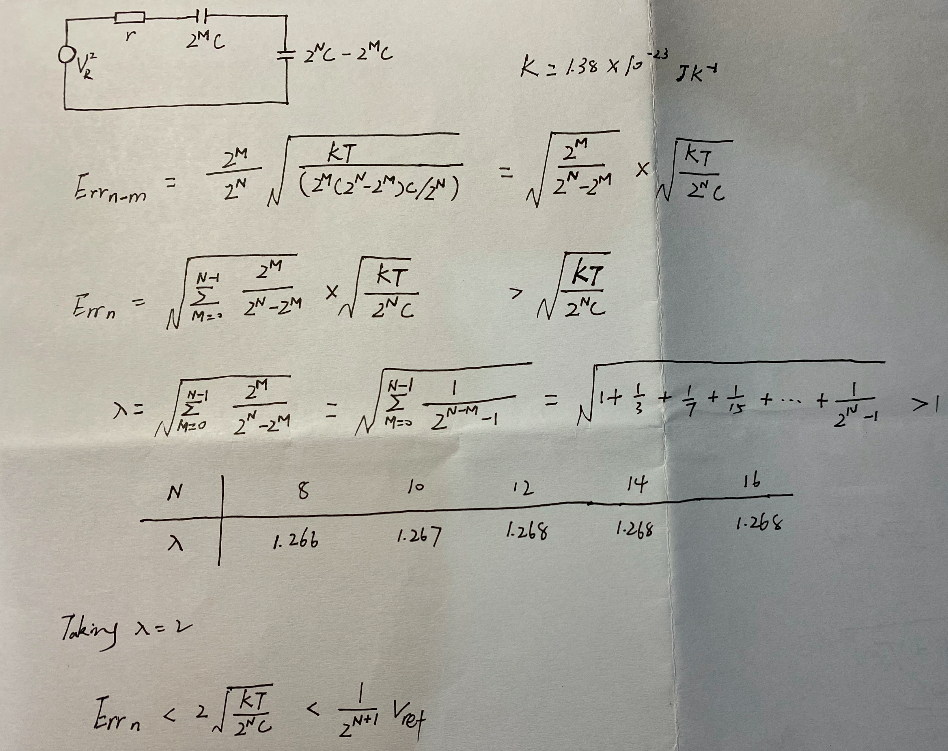 r 2^M C
V_R^2 2^N C - 2^M C
K = 1.38 × 10^-23 JK^-1
Err_{n-m} = 2^M/2^N √(KT/(2^M(2^N-2^M)C/2^N)) = √(2^M/(2^N-2^M)) × √(KT/(2^N C))
Err_n = √(∑_{M=0}^{N-1} 2^M/(2^N-2^M)) × √(KT/(2^N C)) > √(KT/(2^N C))
λ = √(∑_{M=0}^{N-1} 2^M/(2^N-2^M)) = √(∑_{M=0}^{N-1} 1/(2^{N-M}-1)) = √(1 + 1/3 + 1/7 + 1/15 + ... + 1/(2^N-1)) > 1
N 8 10 12 14 16
λ 1.266 1.267 1.268 1.268 1.268
Taking λ = 2
Err_n < 2√(KT/(2^N C)) < 1/2^{N+1} V_ref